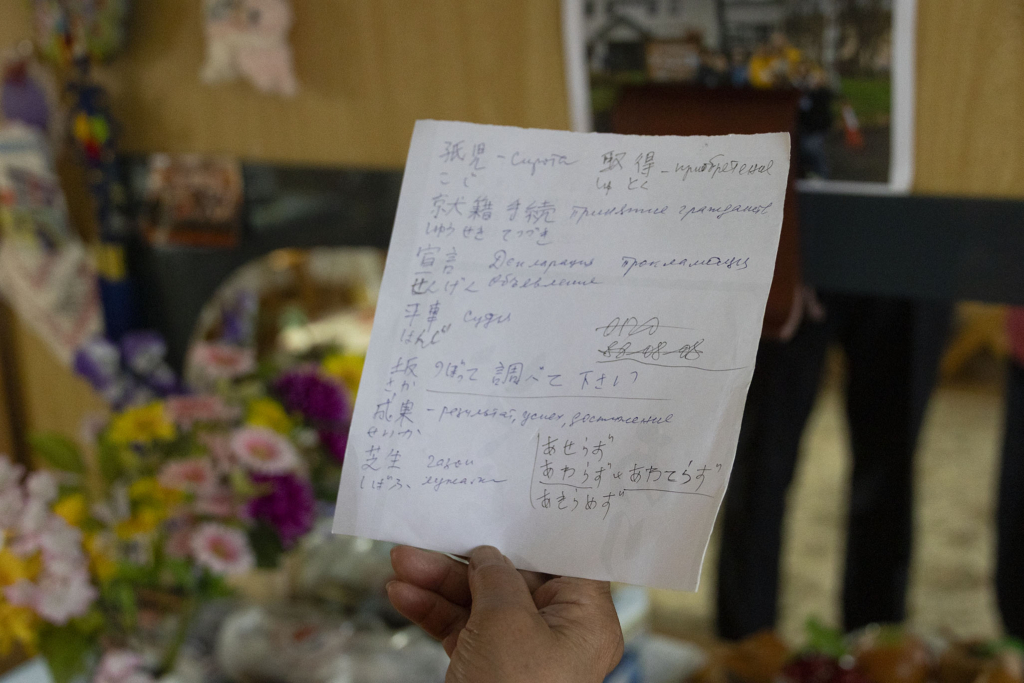 孤児 - Сирота 取得 - приобретение
こじ しゅとく
就籍 手続 Принятие гражданств
しゅうせき てつづき
宣言 Декларация прокламация
せんげん объявления
事 Суди
はんじ
0120
88-08-08
坂 のぼって 調べて 下さい
さか
成果 - результат, успех, достижение
せいか
芝生 газон
しばふ лужайка
あせらず
あわらず × あわてらず
あきらめず